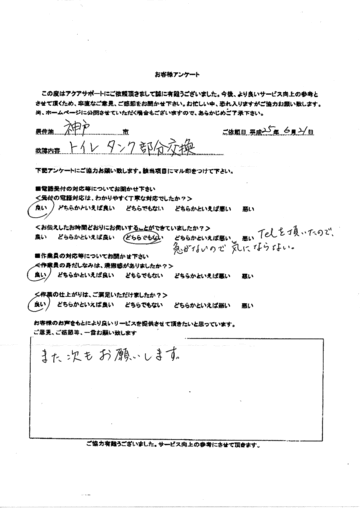 お客様アンケート
この度はアクアサポートにご依頼頂きまして誠に有難うございました。今後、より良いサービス向上の参考と
させて頂くため、率直なご意見、ご感想をお聞かせ下さい。お忙しい中、恐れ入りますがご協力お願い致します。
尚、ホームページに公開させていただく場合もございますので、あらかじめご了承下さい。
神戸 市 ご依頼日 平成25年6月21日
故障内容 トイレタンク部分交換
下記アンケートにご協力お願い致します。該当項目にマル印をつけて下さい。
■電話受付の対応等についてお聞かせ下さい
<受付の電話対応は、わかりやすく丁寧な対応でしたか?>
良い どちらかといえば良い どちらでもない どちらかといえば悪い 悪い
<お伝えしたお時間どおりにお伺いすることができていましたか?>
良い どちらかといえば良い どちらでもない どちらかといえば悪い 悪い
Telを頂いたので、
急がないので気にならない。
■作業員の対応等についてお聞かせ下さい
<作業員の身だしなみは、清潔感がありましたか?>
良い どちらかといえば良い どちらでもない どちらかといえば悪い 悪い
<作業の仕上がりは、ご満足いただけましたか?>
良い どちらかといえば良い どちらでもない どちらかといえば悪い 悪い
お客様のお声をもとにより良いサービスを提供させて頂きたいと思っています。
ご意見、ご感想等、一言お願い致します
また次もお願いします。
ご協力有難うございました。サービス向上の参考にさせて頂きます。